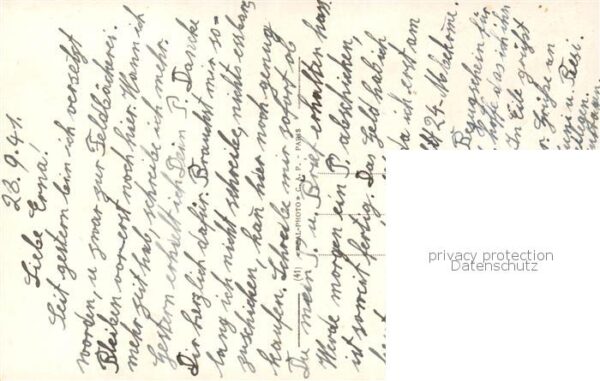 23.9.41.
Liebe Erna!
Seit gestern bin ich versetzt
worden, u zwar zur Feldbäckerei.
Bleiben vorerst noch hier. Wann ich
mehr Zeit hab, schreibe ich mehr.
Gestern erhielt ich Dein P. Danke
Dir herzlich dafür. Brauchst mir so-
lang ich nicht schreibe, nichts essbar
zuschicken, kann hier noch genug
kaufen. Schreibe mir sofort ob
Du mein P. u. Brief erhalten hast
Werde morgen ein P. abschicken,
ist soweit fertig. Das Geld hab ich
da ich erst am
24.
Bezugschein für
hoffe das ich ihn
In Eile grüßt
Grüße an
(41) REAL-PHOTO C.A.P. - PARIS
privacy protection
Datenschutz